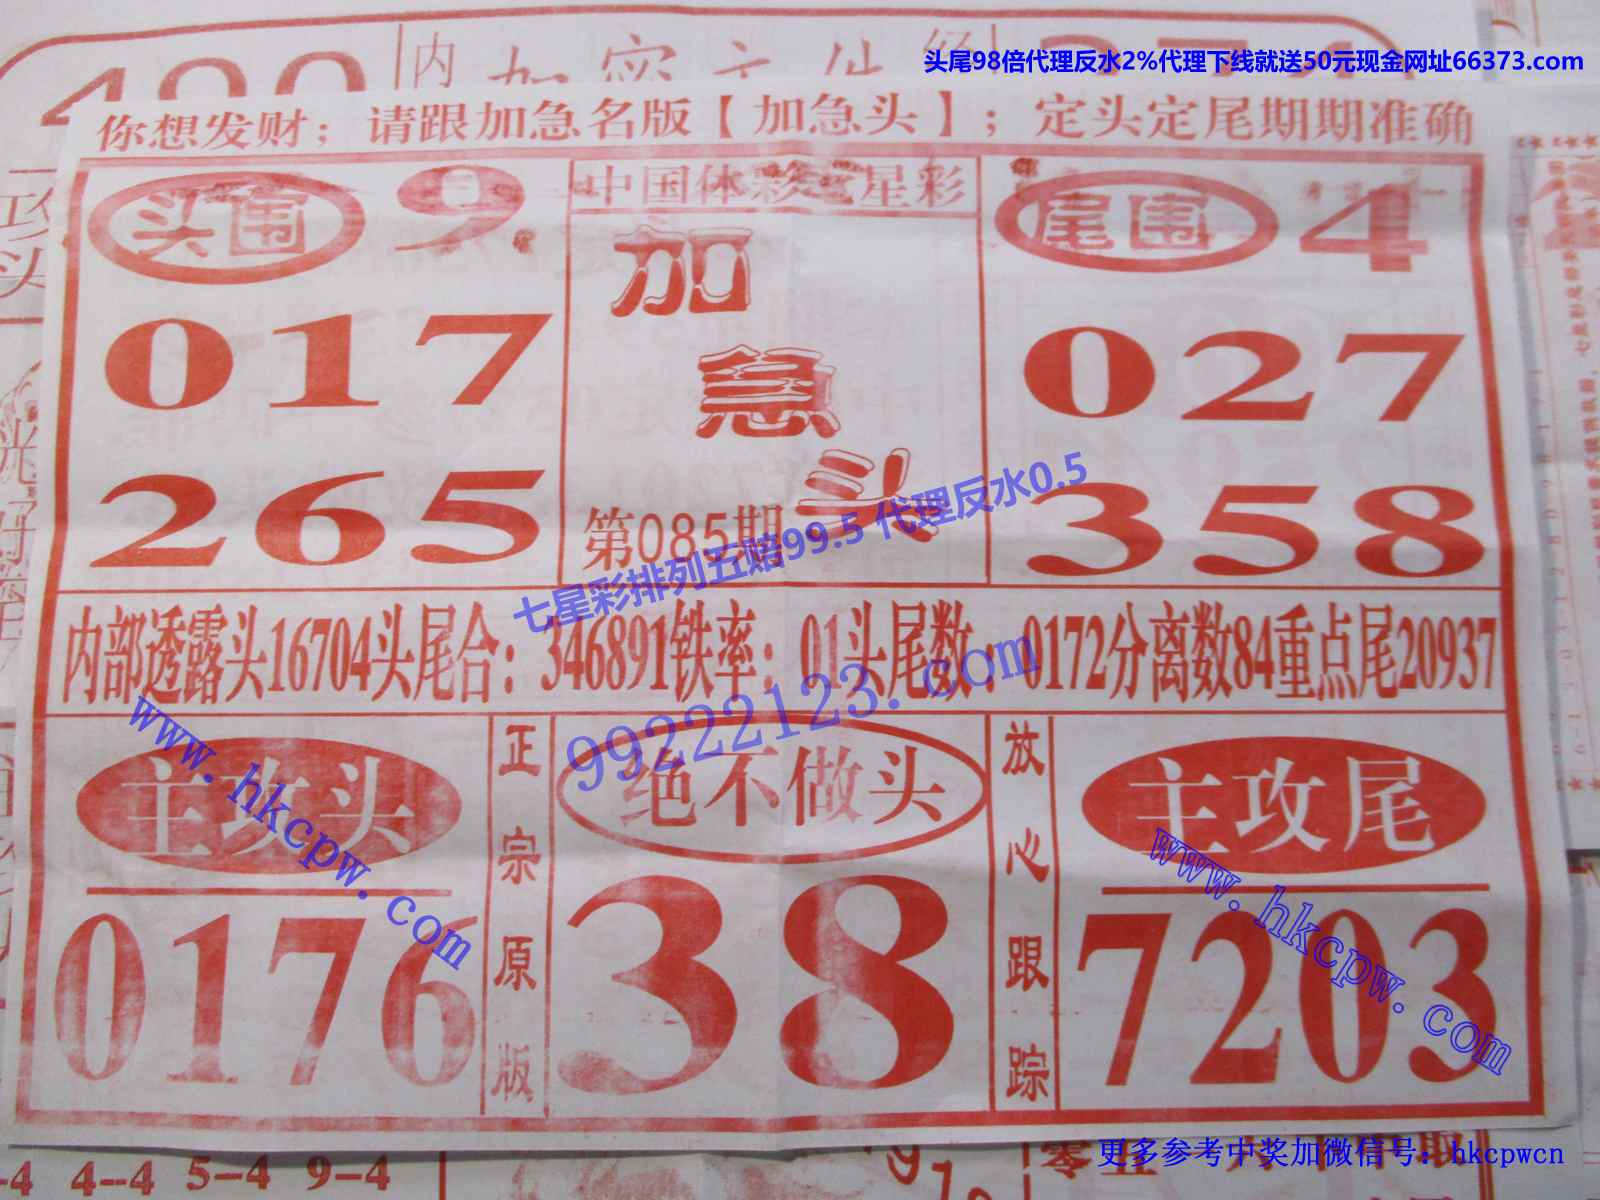 头尾98倍代理反水2%代理下线就送50元现金网址66373.com
你想发财；请跟加急名版【加急头】；定头定尾期期准确
头围 9
017
265
中国体彩七星彩
加急头
第085期
尾围 4
027
358
七星彩排列五赔99.5 代理反水0.5
内部透露头16704头尾合：346891铁率：01头尾数：0172分离数84重点尾20937
99222123.com
www.hkcpw.com
主攻头
0176
正宗原版
绝不做头
38
放心跟踪
主攻尾
7203
www.hkcpw.com
4--4 5--4 9--4
更多参考中奖加微信号：hkcpwcn